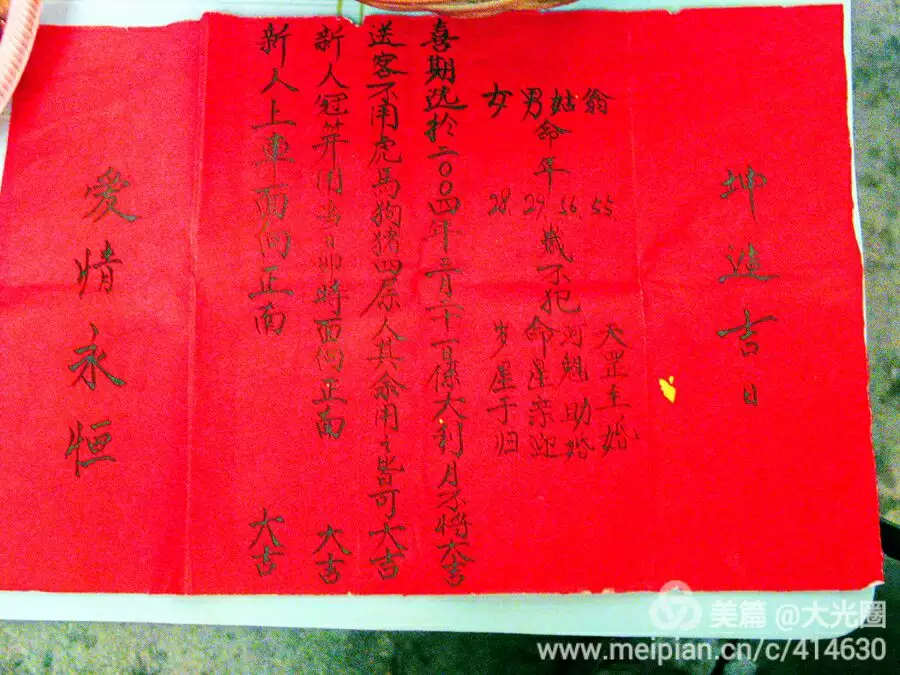 坤造吉日
翁 55 天罡主婚
姑 56 河魁助婚
男命年 29 岁不犯命星亲迎
女 28 岁星于归
喜期选于二〇〇四年二月二十一日係大利月不将大吉
送客不用虎马狗猪四属人其余用之皆可大吉
新人冠笄用当日卯時面向正南 大吉
新人上車面向正南 大吉
愛情永恒
美篇@大光圈
www.meipian.cn/c/414630